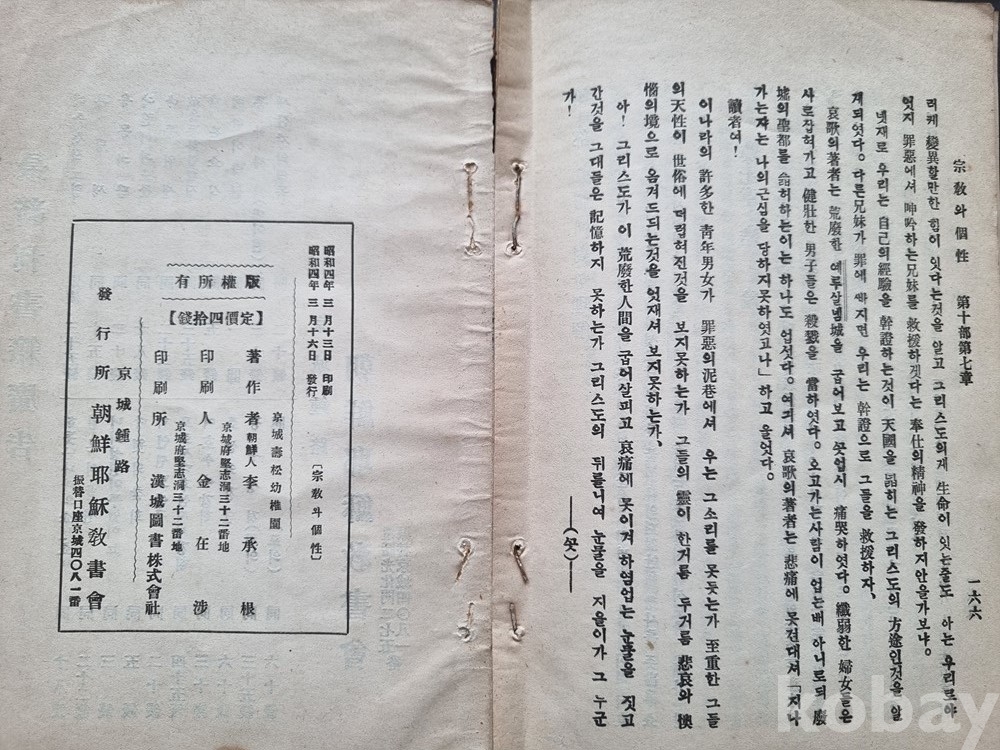 宗敎와個性 第十部第七章 一六六
러케 變異할만한 힘이 잇다는것을 알고 그리스도의게 生命이 잇는줄도 아는 우리로야
엇지 罪惡에셔 呻吟하는兄妹를 救援하겟다는 奉仕의精神을 發하지안을가보냐。
넷재로 우리는 自己의經驗을 幹證하는것이 天國을 넓히는 그리스도의 方途인것을 알
게되엿다。다른兄妹가 罪에 빠지면 우리는 幹證으로 그들을 救援하자、
哀歌의著者는 荒廢한 예루살넴城을 굽어보고 끗업시 痛哭하엿다。纖弱한 婦女들은
사로잡혀가고 健壯한 男子들은 殺戮을 當하엿다。오고가는사람이 업는배 아니로되 廢
墟의聖都를 슯허하는이는 하나도 업섯다。여긔셔 哀歌의著者는 悲痛에 못견대셔「지나
가는쟈는 나의근심을 당하지못하엿고나」하고 울엇다。
讀者여!
이나라의 許多한 靑年男女가 罪惡의泥巷에셔 우는 그소리를 못듯는가 至重한 그들
의天性이 世俗에 더럽혀진것을 보지못하는가 그들의 靈이 한거름 두거름 悲哀와 懊
惱의境으로 옴겨드되는것을 엇재셔 보지못하는가、
아! 그리스도가 이 荒廢한人間을 굽어살피고 哀痛에 못이겨 하염업는 눈물을 짓고
간것을 그대들은 記憶하지 못하는가 그리스도의 뒤틀니여 눈물을 지을이가 그 누군
가!
——(끗)——
昭和四年 三月十三日 印刷
昭和四年 三月十六日 發行
〔宗敎와個性〕
版權所有
【定價四拾錢】
京城壽松幼稚園
著作者 朝鮮人 李承根
京城府堅志洞三十二番地
印刷人 金在涉
京城府堅志洞三十二番地
印刷所 漢城圖書株式會社
京城鍾路
發行所 朝鮮耶穌敎書會
振替口座京城四〇八一番
kobay